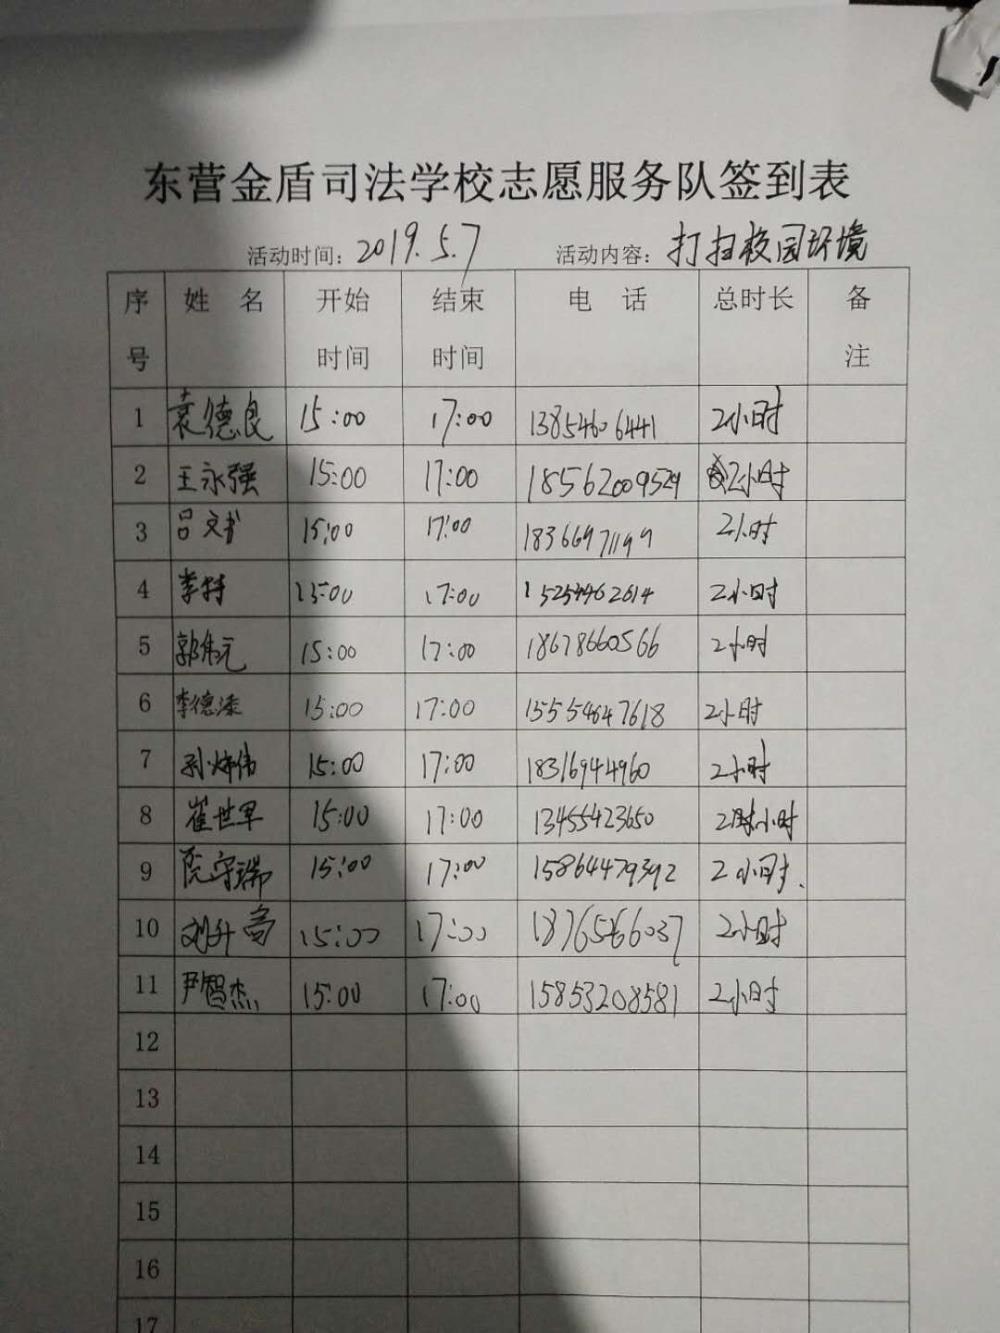 东营金盾司法学校志愿服务队签到表
活动时间：2019.5.7 活动内容：打扫校园环境
序号 姓 名 开始时间 结束时间 电 话 总时长 备注
1 袁德良 15:00 17:00 13854606441 2小时
2 王永强 15:00 17:00 18562009529 2小时
3 吕文书 15:00 17:00 18366971199 2小时
4 李特 15:00 17:00 15254462614 2小时
5 郭伟元 15:00 17:00 18678660566 2小时
6 李德添 15:00 17:00 15554647618 2小时
7 孙炜伟 15:00 17:00 18316944960 2小时
8 崔世军 15:00 17:00 13455423650 2小时
9 阮守瑞 15:00 17:00 15864479392 2小时.
10 刘升高 15:00 17:00 18765466037 2小时
11 尹智杰 15:00 17:00 15853208581 2小时
12
13
14
15
16
17